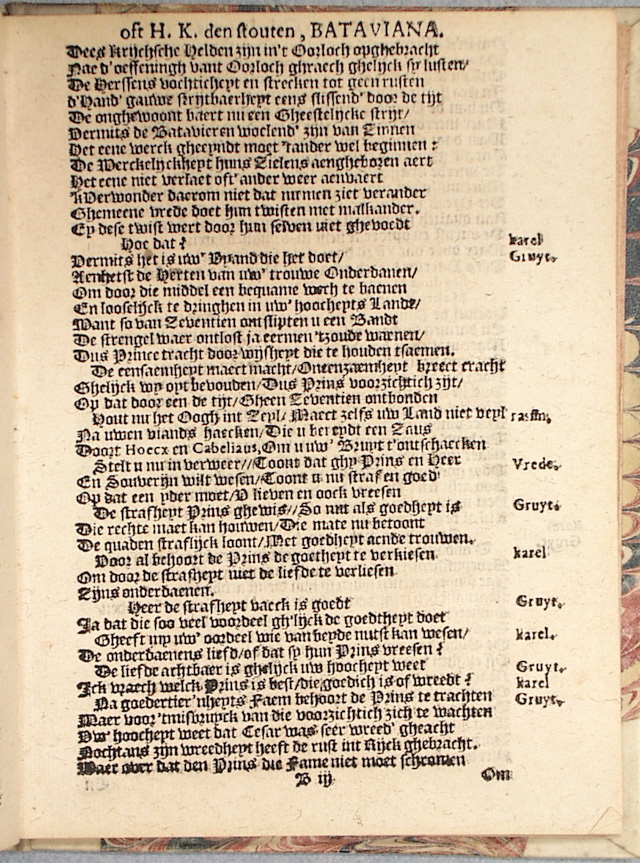 oft H. K. den stouten, BATAVIANA.
Dees krijchsche Helden zijn in't Oorloch opghebracht
Nae d'oeffeningh vant Oorloch ghraech ghelijck sy lusten/
De Herssens vochticheyt en strecken tot geen rusten
d'Hand' gauwe strijtbaerheyt eens slissend' door de tijt
De onghewoont baert nu een Gheestelijcke strijt/
Dermits de Batavieren woelend' zijn van Zinnen
Het eene werck gheeyndt moet 'tander wel beginnen :
De Werckelijckheyt huns Zielens aenghebozen aert
Het eene niet verlaet oft' ander weer aenvaert
'kVerwonder daerom niet dat nu men ziet verander
Ghemeene vrede doet hun twisten met malkander.
Ey dese twist wert door hun selven niet ghevoedt
Hoe dat? karel
Dermits het is uw' Vyand die het doet/ Gruyt.
Aenhetst de Herten van uw' trouwe Onderdanen/
Om door die middel een bequame wech te baenen
En looselijck te dringhen in uw' hoocheyts Lande/
Want so van Zeventien ontslipten u een Bandt
De strengel waer ontlost ja eermen 'tzoude waenen/
Dus Prince tracht door wijsheyt die te houden tsaemen.
De eensaemheyt maect macht/Oneenzaemheyt breect cracht
Ghelijck wy opt bevouden/Dus Prins voorzichtich zijt/
Op dat door een de tijt/Gheen Zeventien ontbonden
Hout nu het Oogh int Zeyl/Maect zelfs uw Land niet veyl rassin.
Na uwen viands haecken/Die u bereydt een Zaus
Doort Hoecx en Cabeliaus,Om u uw' Bruyt t'ontschaecken
Stelt u nu in verweer//Toont dat ghy Prins en Heer Vrede.
En Souverijn wilt wesen/Toont u nu straf en goed
Op dat een yder moet/V lieven en oock vreesen
De strafheyt Prins ghewis//So nut als goedheyt is Gruyt.
Die rechte maet kan houwen/Die mate nu betoont
De quaden straflijck loont/Met goedheyt aende trouwen.
Voor al behoort de Prins de goetheyt te verkiesen karel
Om door de strafheyt niet de liefde te verliesen
Zijns onderdaenen.
Heer de strafheyt vaeck is goedt Gruyt.
Ja dat die soo veel voordeel gh'lijck de goedtheyt doet
Gheeft my uw' oordeel wie van beyde nutst kan wesen/ karel.
De onderdaenens liefd/of dat sy hun Prins vreesen?
De liefde achtbaer is ghelijck uw hoocheyt weet Gruyt.
Ick vraech welck Prins is best/die goedich is of wreedt? karel
Na goedertier'nheyts Faem behoort de Prins te trachten Gruyt.
Maer voor 'tmisbruyck van die voorzichtich zich te wachten
Vw' hoocheyt weet dat Cesar was seer wreed' gheacht
Nochtans zijn wreedheyt heeft de rust int Rijck ghebracht.
Maer over dat den Prins die Fame niet moet schromen
B iij Om